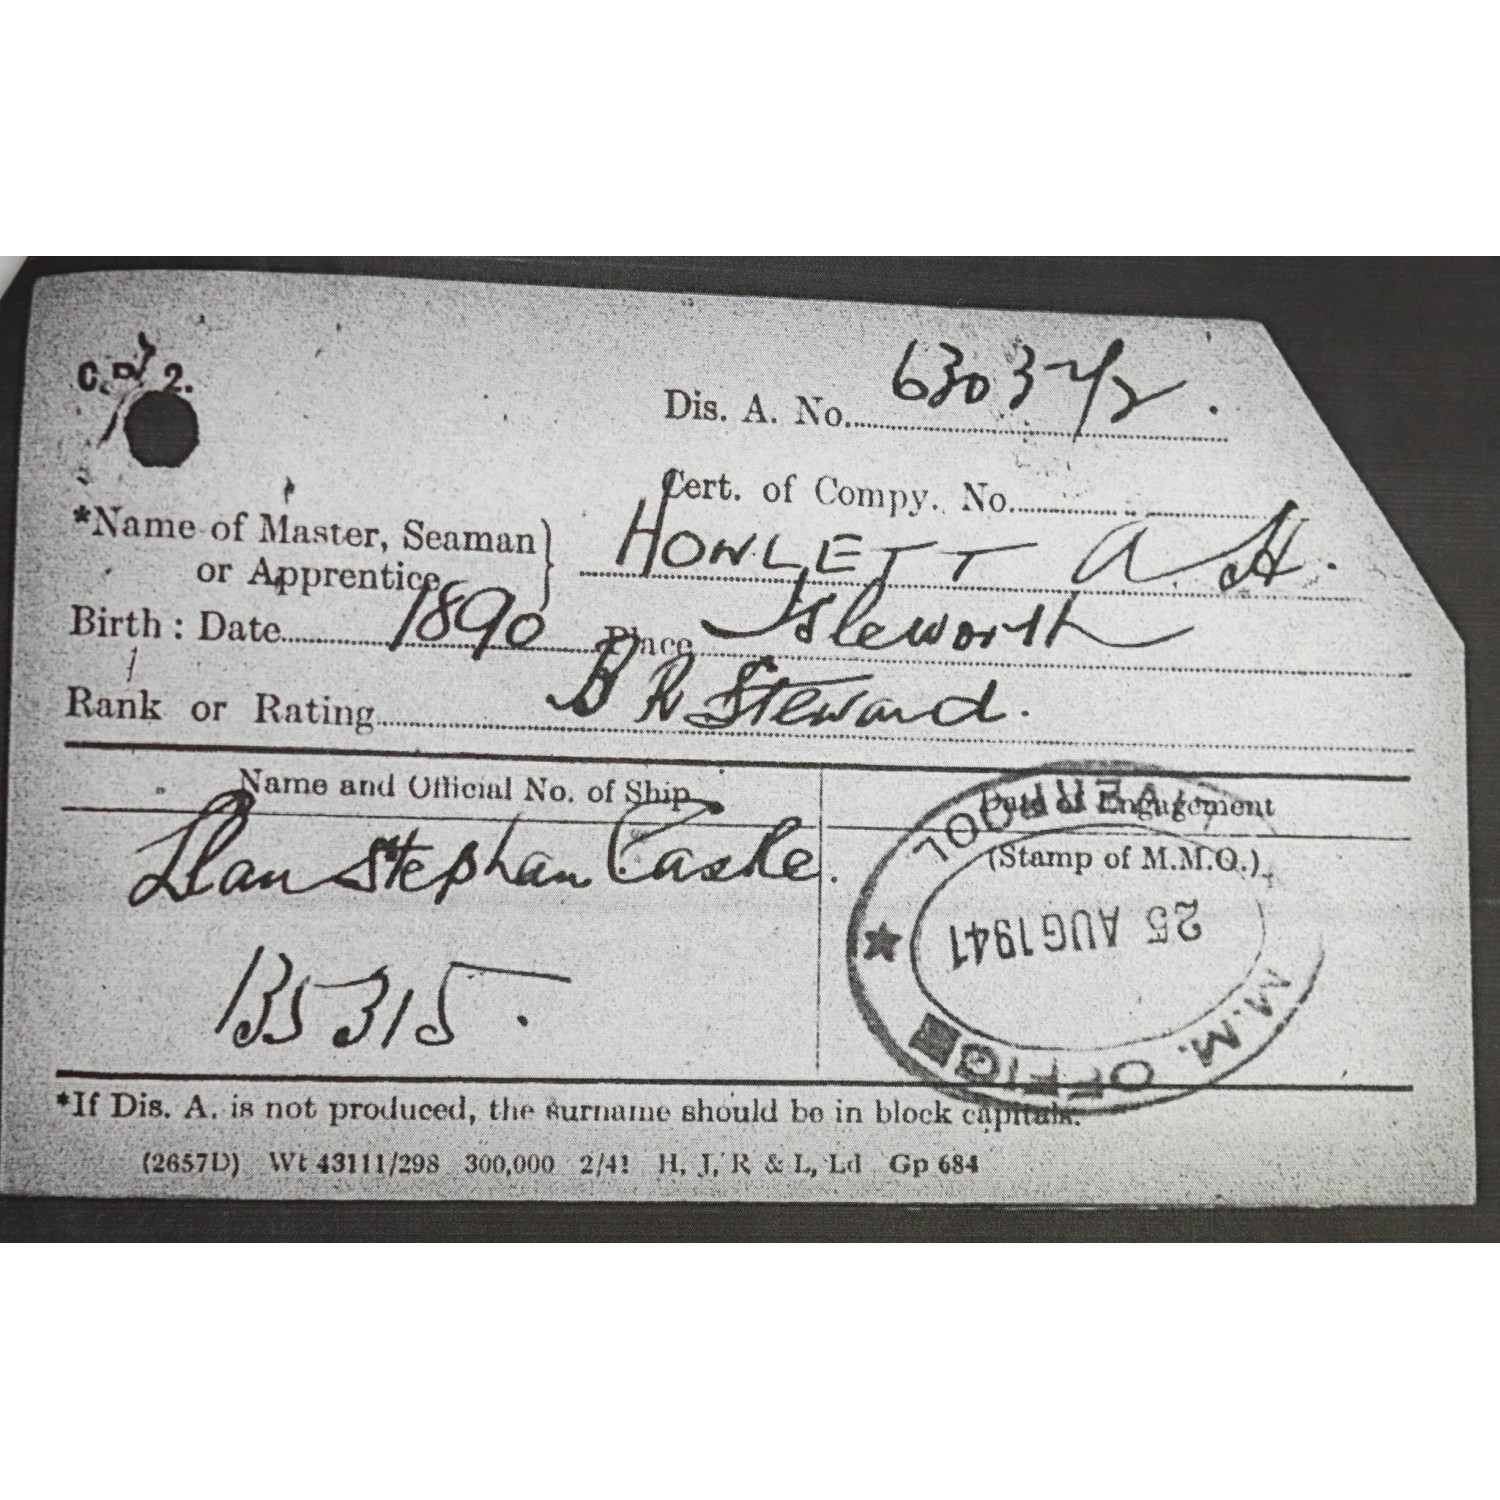 C.R. 2.
Dis. A. No.
Cert. of Compy. No.
*Name of Master, Seaman or Apprentice HOWLETT A. H.
Birth: Date 1890 Place Isleworth
Rank or Rating B R Steward.
Name and Official No. of Ship
Date of Engagement
(Stamp of M.M.O.)
Llan Stephan Castle.
135315.
LIVERPOOL
25 AUG 1941
M.M. OFFICE
*If Dis. A. is not produced, the surname should be in block capitals.
(2657D) Wt 43111/298 300,000 2/41 H, J, R & L, Ld Gp 684